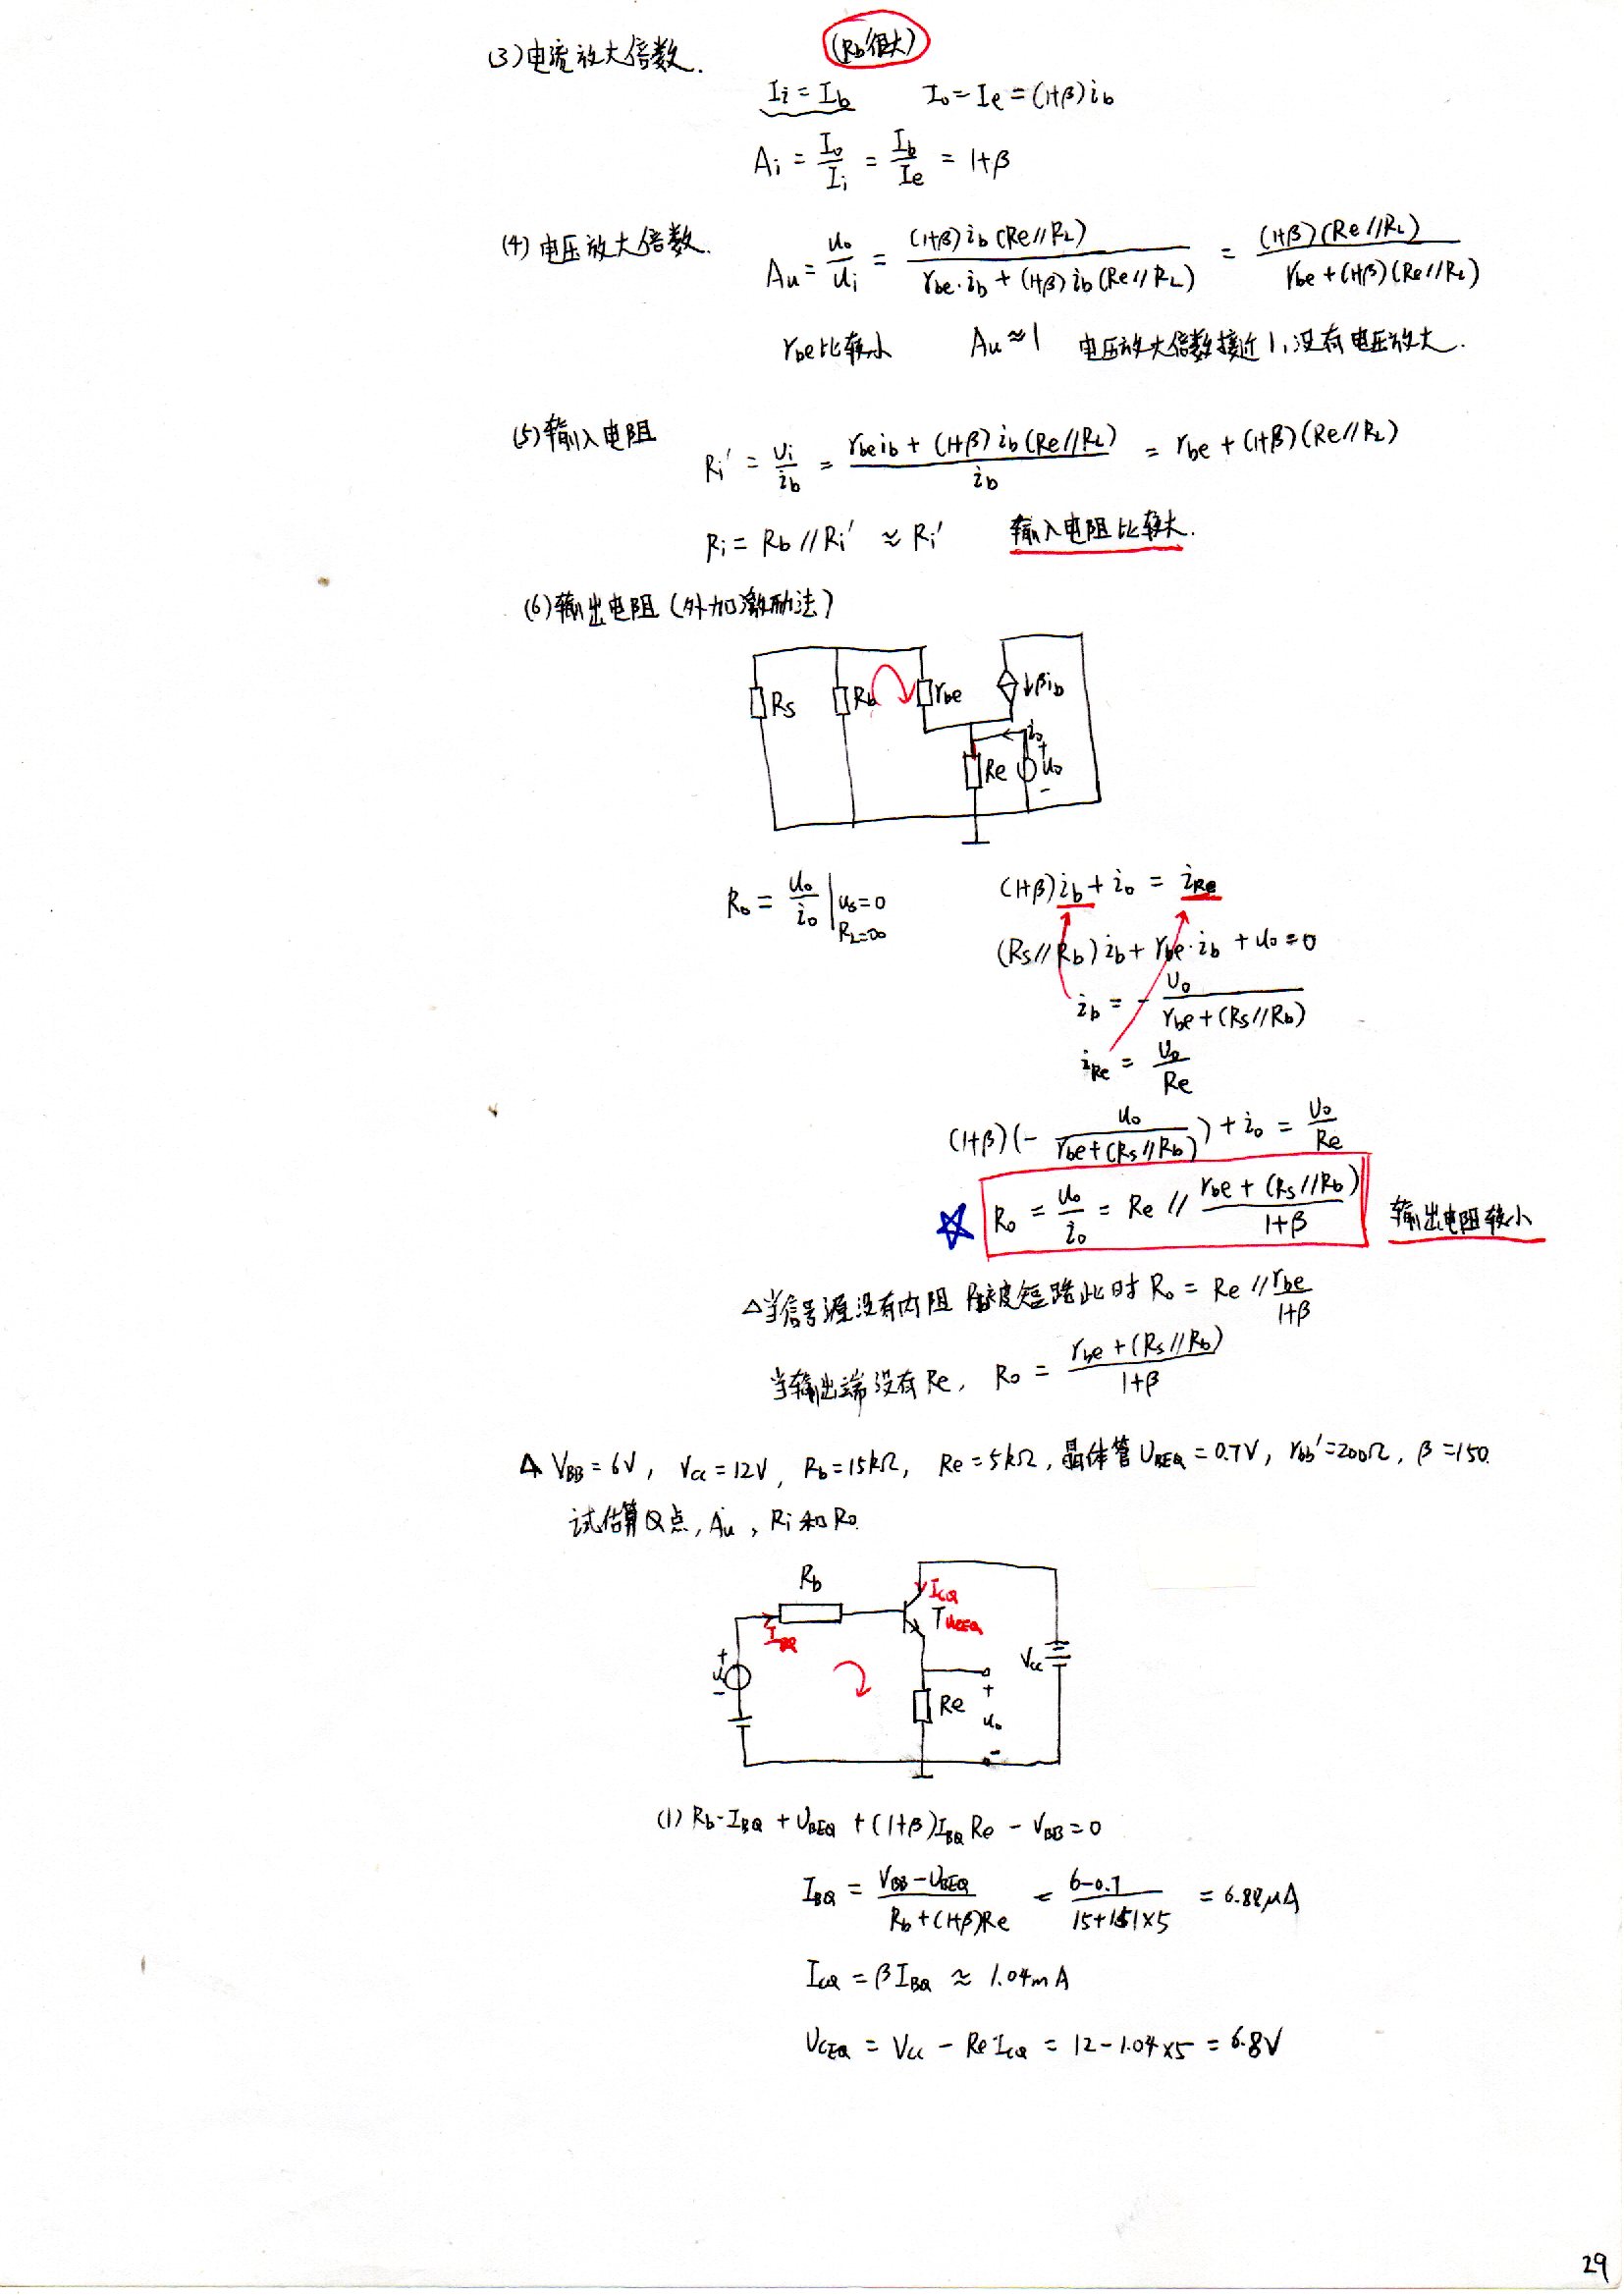 (3)电流放大倍数. (Rb很大)
Ii = Ib Io = Ie = (1+β)ib
Ai = Io/Ii = Ib/Ie = 1+β
(4) 电压放大倍数. Au = uo/ui = (1+β)ib(Re//RL)/(rbe·ib + (1+β)ib(Re//RL)) = (1+β)(Re//RL)/(rbe + (1+β)(Re//RL))
rbe比较小 Au≈1 电压放大倍数接近1, 没有电压放大.
(5)输入电阻 Ri' = ui/ib = (rbe ib + (1+β)ib(Re//RL))/ib = rbe + (1+β)(Re//RL)
Ri = Rb//Ri' ≈ Ri' 输入电阻比较大.
(6)输出电阻(外加激励法)
Rs Rb rbe ↓βib
io
Re + uo -
Ro = uo/io | us=0 RL=∞ (1+β)ib + io = iRe
(Rs//Rb)ib + rbe·ib + uo = 0
ib = - uo/(rbe+(Rs//Rb))
iRe = uo/Re
(1+β)(- uo/(rbe+(Rs//Rb))) + io = uo/Re
☆ Ro = uo/io = Re // (rbe + (Rs//Rb))/(1+β) 输出电阻较小
△当信号源没有内阻 被短路此时 Ro = Re // rbe/(1+β)
当输出端没有Re, Ro = (rbe + (Rs//Rb))/(1+β)
△ VBB = 6V, Vcc = 12V, Rb = 15kΩ, Re = 5kΩ, 晶体管UBEQ = 0.7V, rbb' = 200Ω, β = 150.
试估算Q点, Au, Ri和Ro.
Rb ICQ
IBQ T UCEQ
+ u - Vcc
Re + uo -
(1) Rb·IBQ + UBEQ + (1+β)IBQ Re - VBB = 0
IBQ = (VBB - UBEQ)/(Rb + (1+β)Re) = (6-0.7)/(15+151×5) = 6.88μA
ICQ = βIBQ ≈ 1.04mA
UCEQ = Vcc - Re·ICQ = 12 - 1.04×5 = 6.8V
29